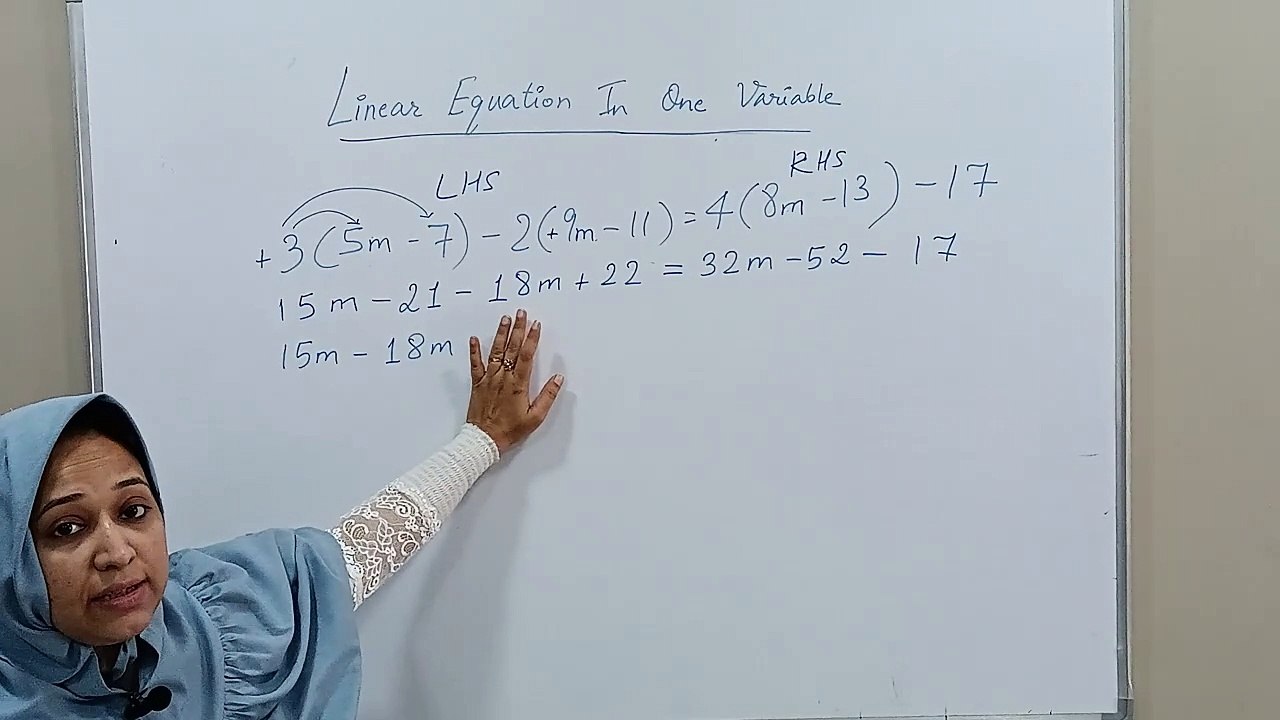 Linear Equation In One Variable
LHS RHS
+3(5m - 7) - 2(+9m - 11) = 4(8m - 13) - 17
15m - 21 - 18m + 22 = 32m - 52 - 17
15m - 18m